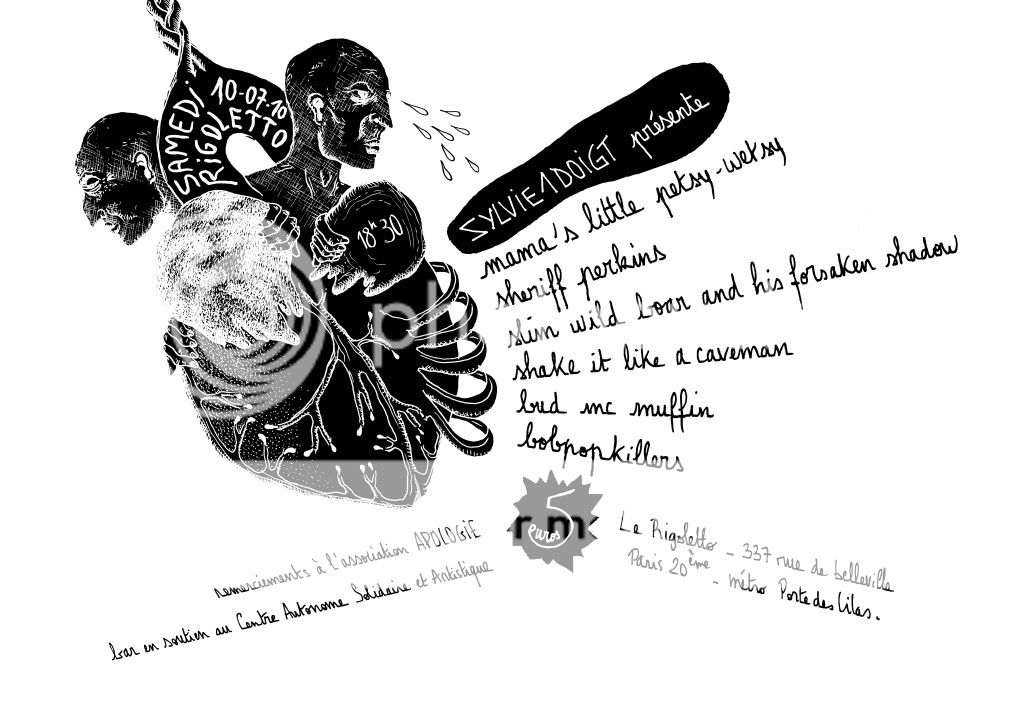 SAMEDI 10-07-10
RiGOLETTO
18h30
SYLVIE 1 DOIGT présente
mama's little petsy-wetsy
sheriff perkins
slim wild boar and his forsaken shadow
shake it like a caveman
bud mc muffin
bobpopkillers
5
euros
remerciements à l'association APOLOGIE
bar en soutien au Centre Autonome Solidaire et Artistique
Le Rigoletto - 337 rue de belleville
Paris 20ème - métro Porte des Lilas.